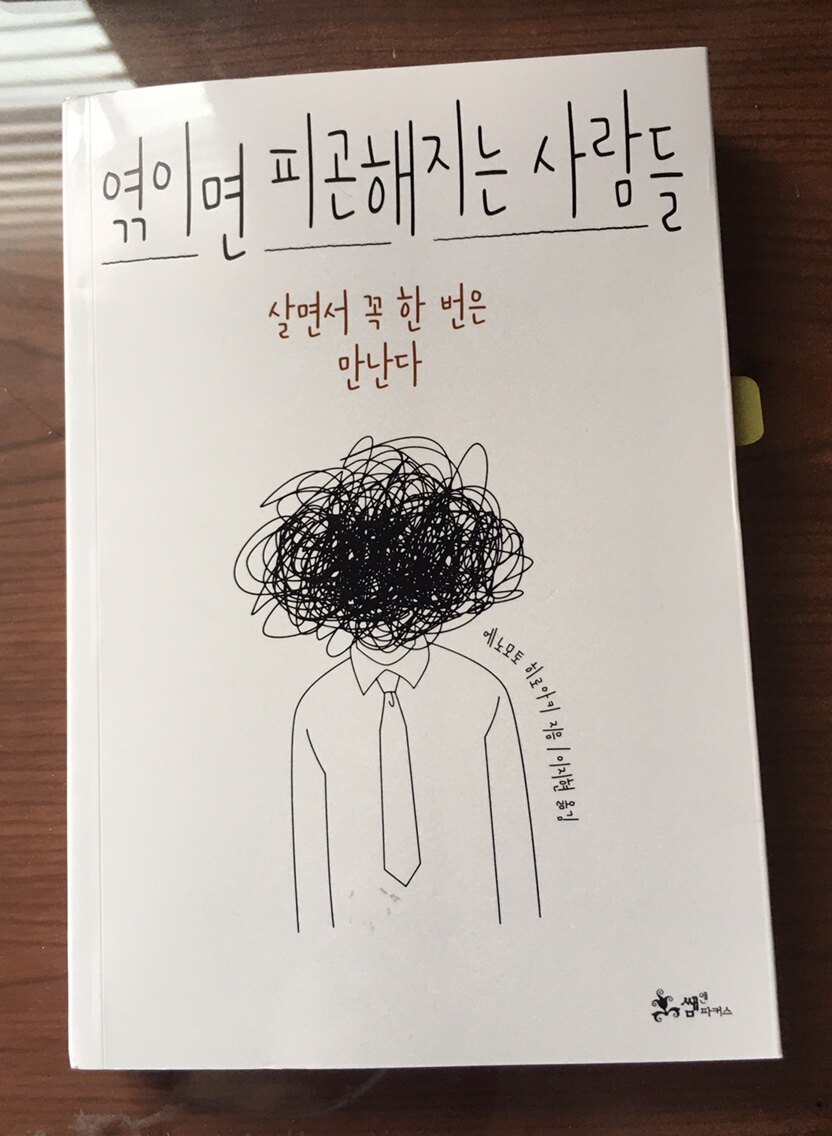 엮이면 피곤해지는 사람들
살면서 꼭 한 번은
만난다
에노모토 히로아키 지음 / 이지현 옮김
쌤앤파커스